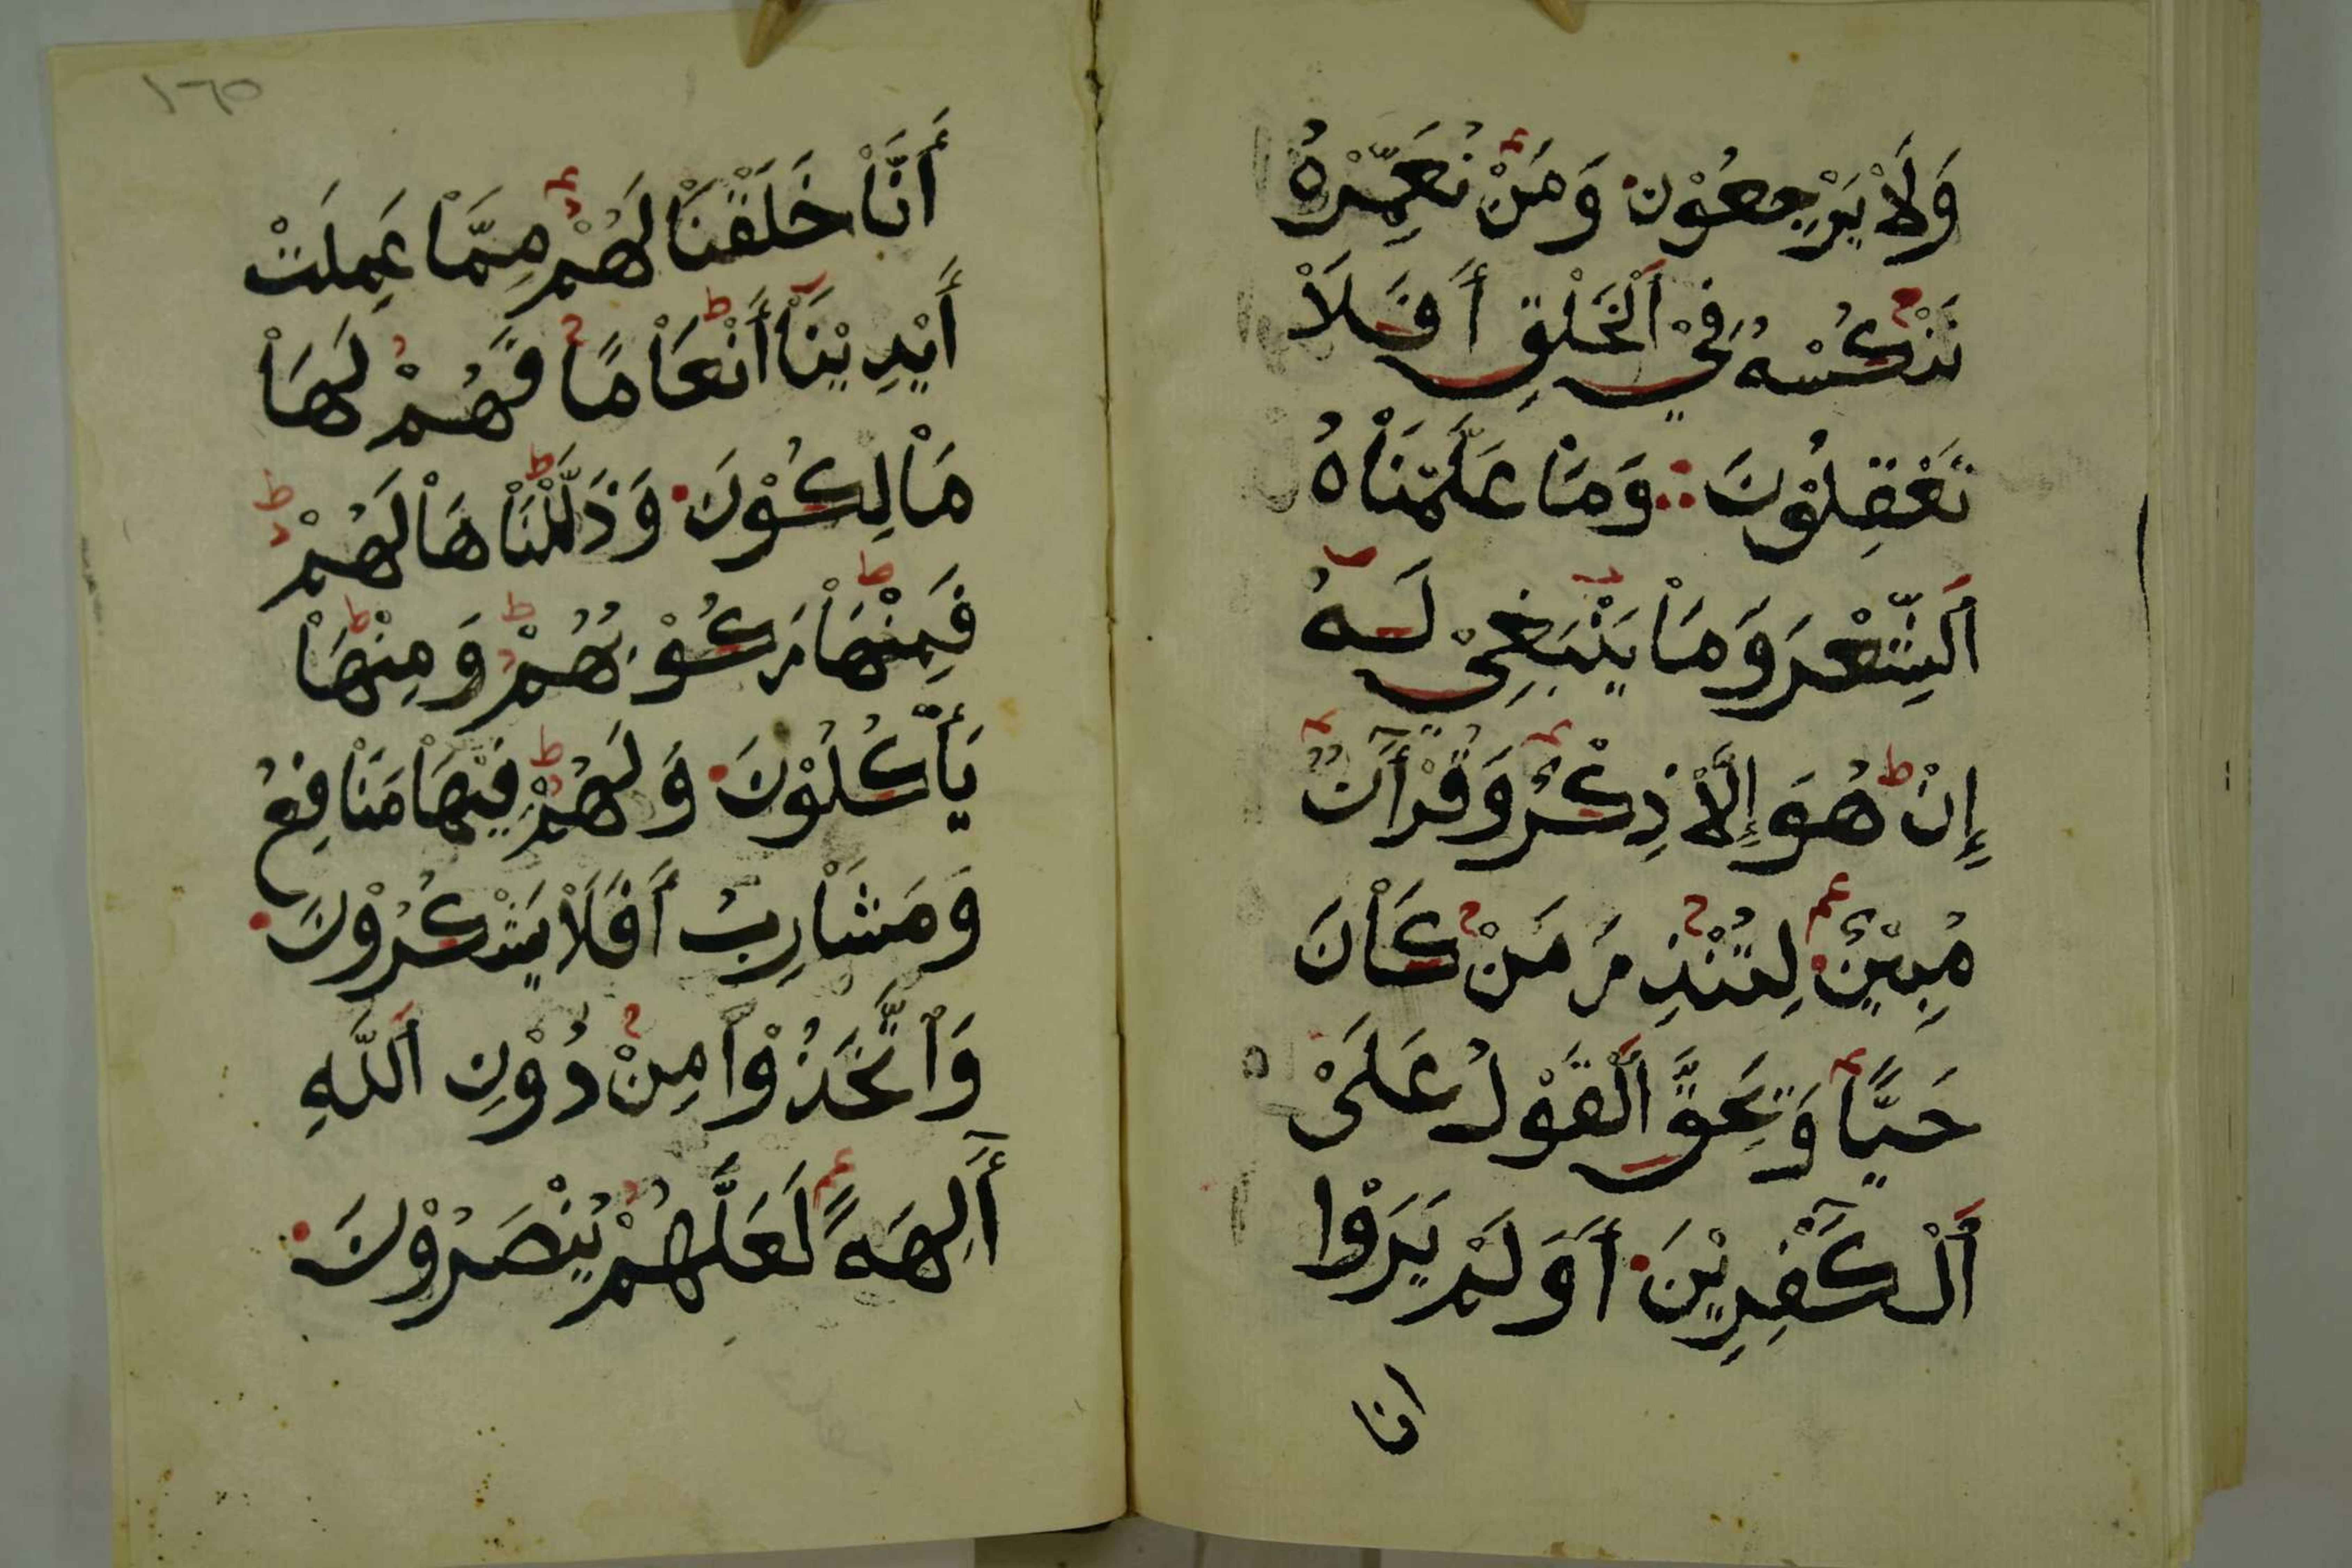 وَلَاْ يَرْجِعُوْنَ وَمَنْ نُعَمِّرْهُ
نَنْكُسْهُ فِيْ اَلْخَلْقِ أَفَلَاْ
تَعْقِلُوْنَ وَمَاْ عَلَّمْنَاْهُ
اَلشِّعْرَ وَمَاْ يَنْبَغِيْ لَهُ
إِنْ هُوَ إِلَّاْ ذِكْرٌ وَقُرْأَٓنٌ
مُبِيْنٌ لِتُنْذِرَ مَنْ كَاْنَ
حَيًّا وَيَحِقَّ اَلْقَوْلُ عَلَىْ
اَلْكَٓفِرِيْنَ أَوَلَمْ يَرَوْا
انا
١٦٥
أَنَّاْ خَلَقْنَاْ لَهُمْ مِمَّاْ عَمِلَتْ
أَيْدِيْنَاْ أَنْعَاْمًا فَهُمْ لَهَاْ
مَاْلِكُوْنَ وَذَلَّلْنَاْهَاْ لَهُمْ
فَمِنْهَاْ رَكُوْبُهُمْ وَمِنْهَاْ
يَأْكُلُوْنَ وَلَهُمْ فِيْهَاْ مَنَاْفِعُ
وَمَشَاْرِبُ أَفَلَاْ يَشْكُرُوْنَ
وَاْتَّخَذُوْاْ مِنْ دُوْنِ اَللَّهِ
أَٓلِهَةً لَعَلَّهُمْ يُنْصَرُوْنَ